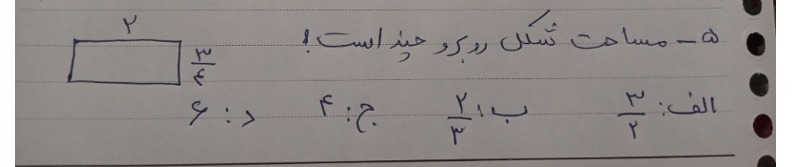 ۵- مساحت شکل روبرو چند است؟
۲
۳/۴
الف: ۳/۲ ب: ۲/۳ ج: ۴ د: ۶